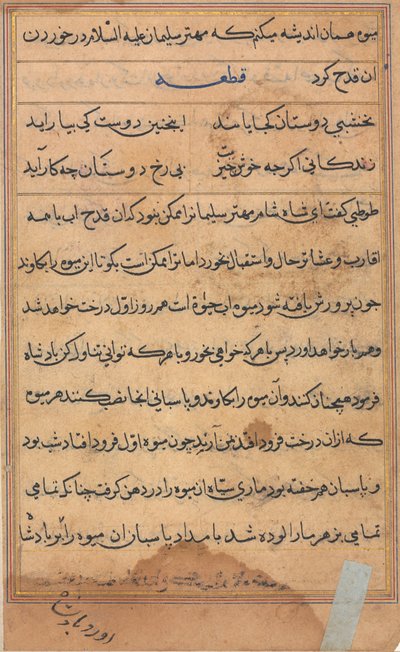 میوه همان اندیشه میکنم که مهتر سلیمان علیه السلام در خوردن
ان قدح کرد قطعه
نخشبی دوستان کجا یابند اینچنین دوست کی بیاراید
زندکانی اکرچه خوش چیزیست بی رخ دوستان چه کار آید
طوطی کفت ای شاه شاهان مهتر سلیمان را ممکن نبود که ان قدح اب با همه
اقارب و عشایر حال و استقبال بخورد اما ترا ممکن است بکو تا این میوه را بکاوند
چون پرورش یافته شود میوه اب حیوة است هم روز اول درخت خواهد شد
و هم بار خواهد اورد پس با هر که خواهی بخور و با هر که توانی تناول کن بادشاه
فرمود همچنان کنند و آن میوه را بکاوند و پاسبانی انجا نصب کنند هر میوه
که از ان درخت فرود افتد بمن آرید چون میوه اول فرود افتاد شب بود
و پاسبان هم خفته بود ماری سیاه ان میوه را در دهن کرفت چنانکه تمامی
تمامی بزهر مار الوده شد بامداد پاسبان ان میوه را بر بادشاه
اورد بادشاه